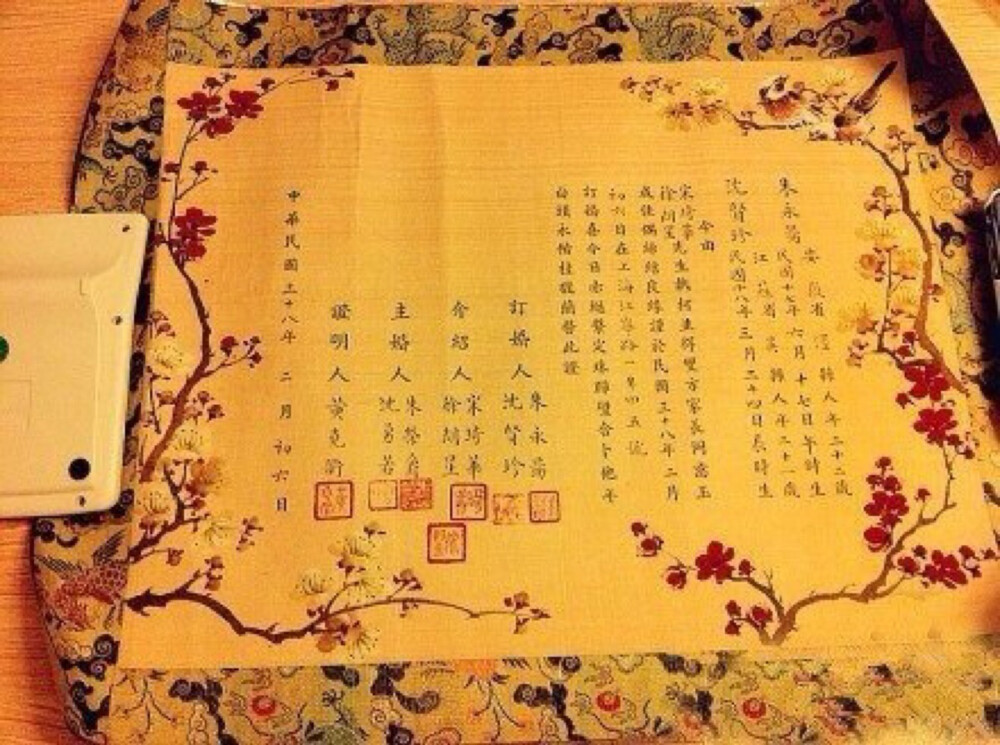 朱永 安徽省涇縣人年二十二歲
民國十七年六月十七日午時生
沈賢珍 江蘇省吳縣人年二十一歲
民國十八年三月二十四日辰時生
今由
宋琦華
徐星 先生執柯並得雙方家長同意玉
成佳偶絲綿良緣謹於民國三十八年二月
初六日在上海江寧路一弄四五號
訂婚喜今日赤繩繫定珠聯璧合卜他年
白頭永偕桂馥蘭馨此證
訂婚人 朱永
沈賢珍
介紹人 宋琦華
徐星
主婚人 朱
沈勇若
證明人 黃克
中華民國三十八年 二月初六日